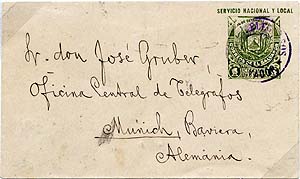 SERVICIO NACIONAL Y LOCAL
Sr. don José Gruber,
Oficina Central de Telégrafos
Múnich, Baviera,
Alemánia.